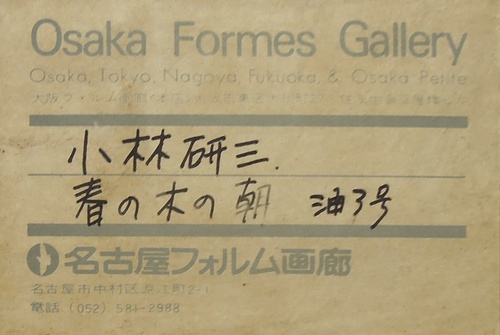 Osaka Formes Gallery
Osaka, Tokyo, Nagoya, Fukuoka, & Osaka Petite
大阪フォルム画廊
小林研三.
春の木の朝 油3号
名古屋フォルム画廊
名古屋市中村区
電話 (052) 581-2988